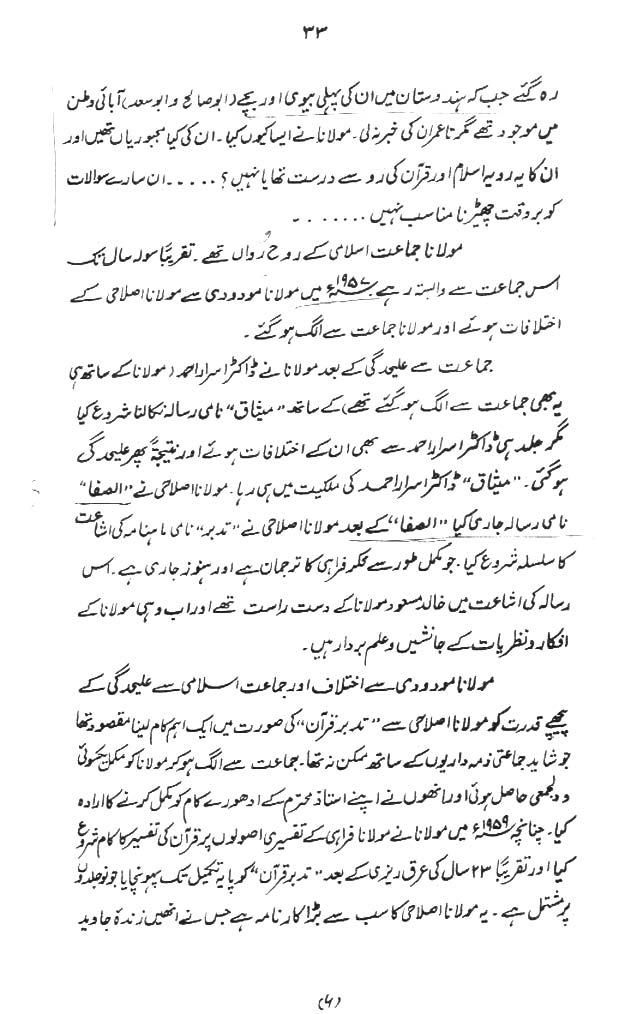 ۳۳
رہ گئے جب کہ ہندوستان میں ان کی پہلی بیوی اور بچے (ابو صالح و ابو سعد) آبائی وطن
میں موجود تھے مگر تا عمر ان کی خبر نہ لی۔ مولانا نے ایسا کیوں کیا۔ ان کی کیا مجبوریاں تھیں اور
ان کا یہ رویہ اسلام اور قرآن کی رو سے درست تھا یا نہیں؟ ..... ان سارے سوالات
کو بر وقت چھیڑنا مناسب نہیں .......
مولانا جماعت اسلامی کے روح رواں تھے۔ تقریباً سولہ سال تک
اس جماعت سے وابستہ رہے ۱۹۵۷ء میں مولانا مودودی سے مولانا اصلاحی کے
اختلافات ہوئے اور مولانا جماعت سے الگ ہو گئے۔
جماعت سے علیحدگی کے بعد مولانا نے ڈاکٹر اسرار احمد (مولانا کے ساتھ ہی
یہ بھی جماعت سے الگ ہو گئے تھے) کے ساتھ "میثاق" نامی رسالہ نکالنا شروع کیا
مگر جلد ہی ڈاکٹر اسرار احمد سے بھی ان کے اختلافات ہوئے اور نتیجۃً پھر علیحدگی
ہو گئی۔ "میثاق" ڈاکٹر اسرار احمد کی ملکیت میں ہی رہا۔ مولانا اصلاحی نے "الصفا"
نامی رسالہ جاری کیا "الصفا" کے بعد مولانا اصلاحی نے "تدبر" نامی ماہنامہ کی اشاعت
کا سلسلہ شروع کیا۔ جو مکمل طور سے فکر فراہی کا ترجمان ہے اور ہنوز جاری ہے۔ اس
رسالہ کی اشاعت میں خالد مسعود مولانا کے دست راست تھے اور اب وہی مولانا کے
افکار و نظریات کے جانشیں و علم بردار ہیں۔
مولانا مودودی سے اختلاف اور جماعت اسلامی سے علیحدگی کے
پیچھے قدرت کو مولانا اصلاحی سے "تدبر قرآن" کی صورت میں ایک اہم کام لینا مقصود تھا
جو شاید جماعتی ذمہ داریوں کے ساتھ ممکن نہ تھا۔ جماعت سے الگ ہو کر مولانا کو مکمل یکسوئی
و دلجمعی حاصل ہوئی اور انھوں نے اپنے استاذ محترم کے ادھورے کام کو مکمل کرنے کا ارادہ
کیا۔ چنانچہ ۱۹۵۹ء میں مولانا نے مولانا فراہی کے تفسیری اصولوں پر قرآن کی تفسیر کا کام شروع
کیا اور تقریباً ۲۳ سال کی عرق ریزی کے بعد "تدبر قرآن" کو پایہ تکمیل تک پہونچایا جو نو جلدوں
پر مشتمل ہے۔ یہ مولانا اصلاحی کا سب سے بڑا کارنامہ ہے جس نے انھیں زندۂ جاوید
(۶)